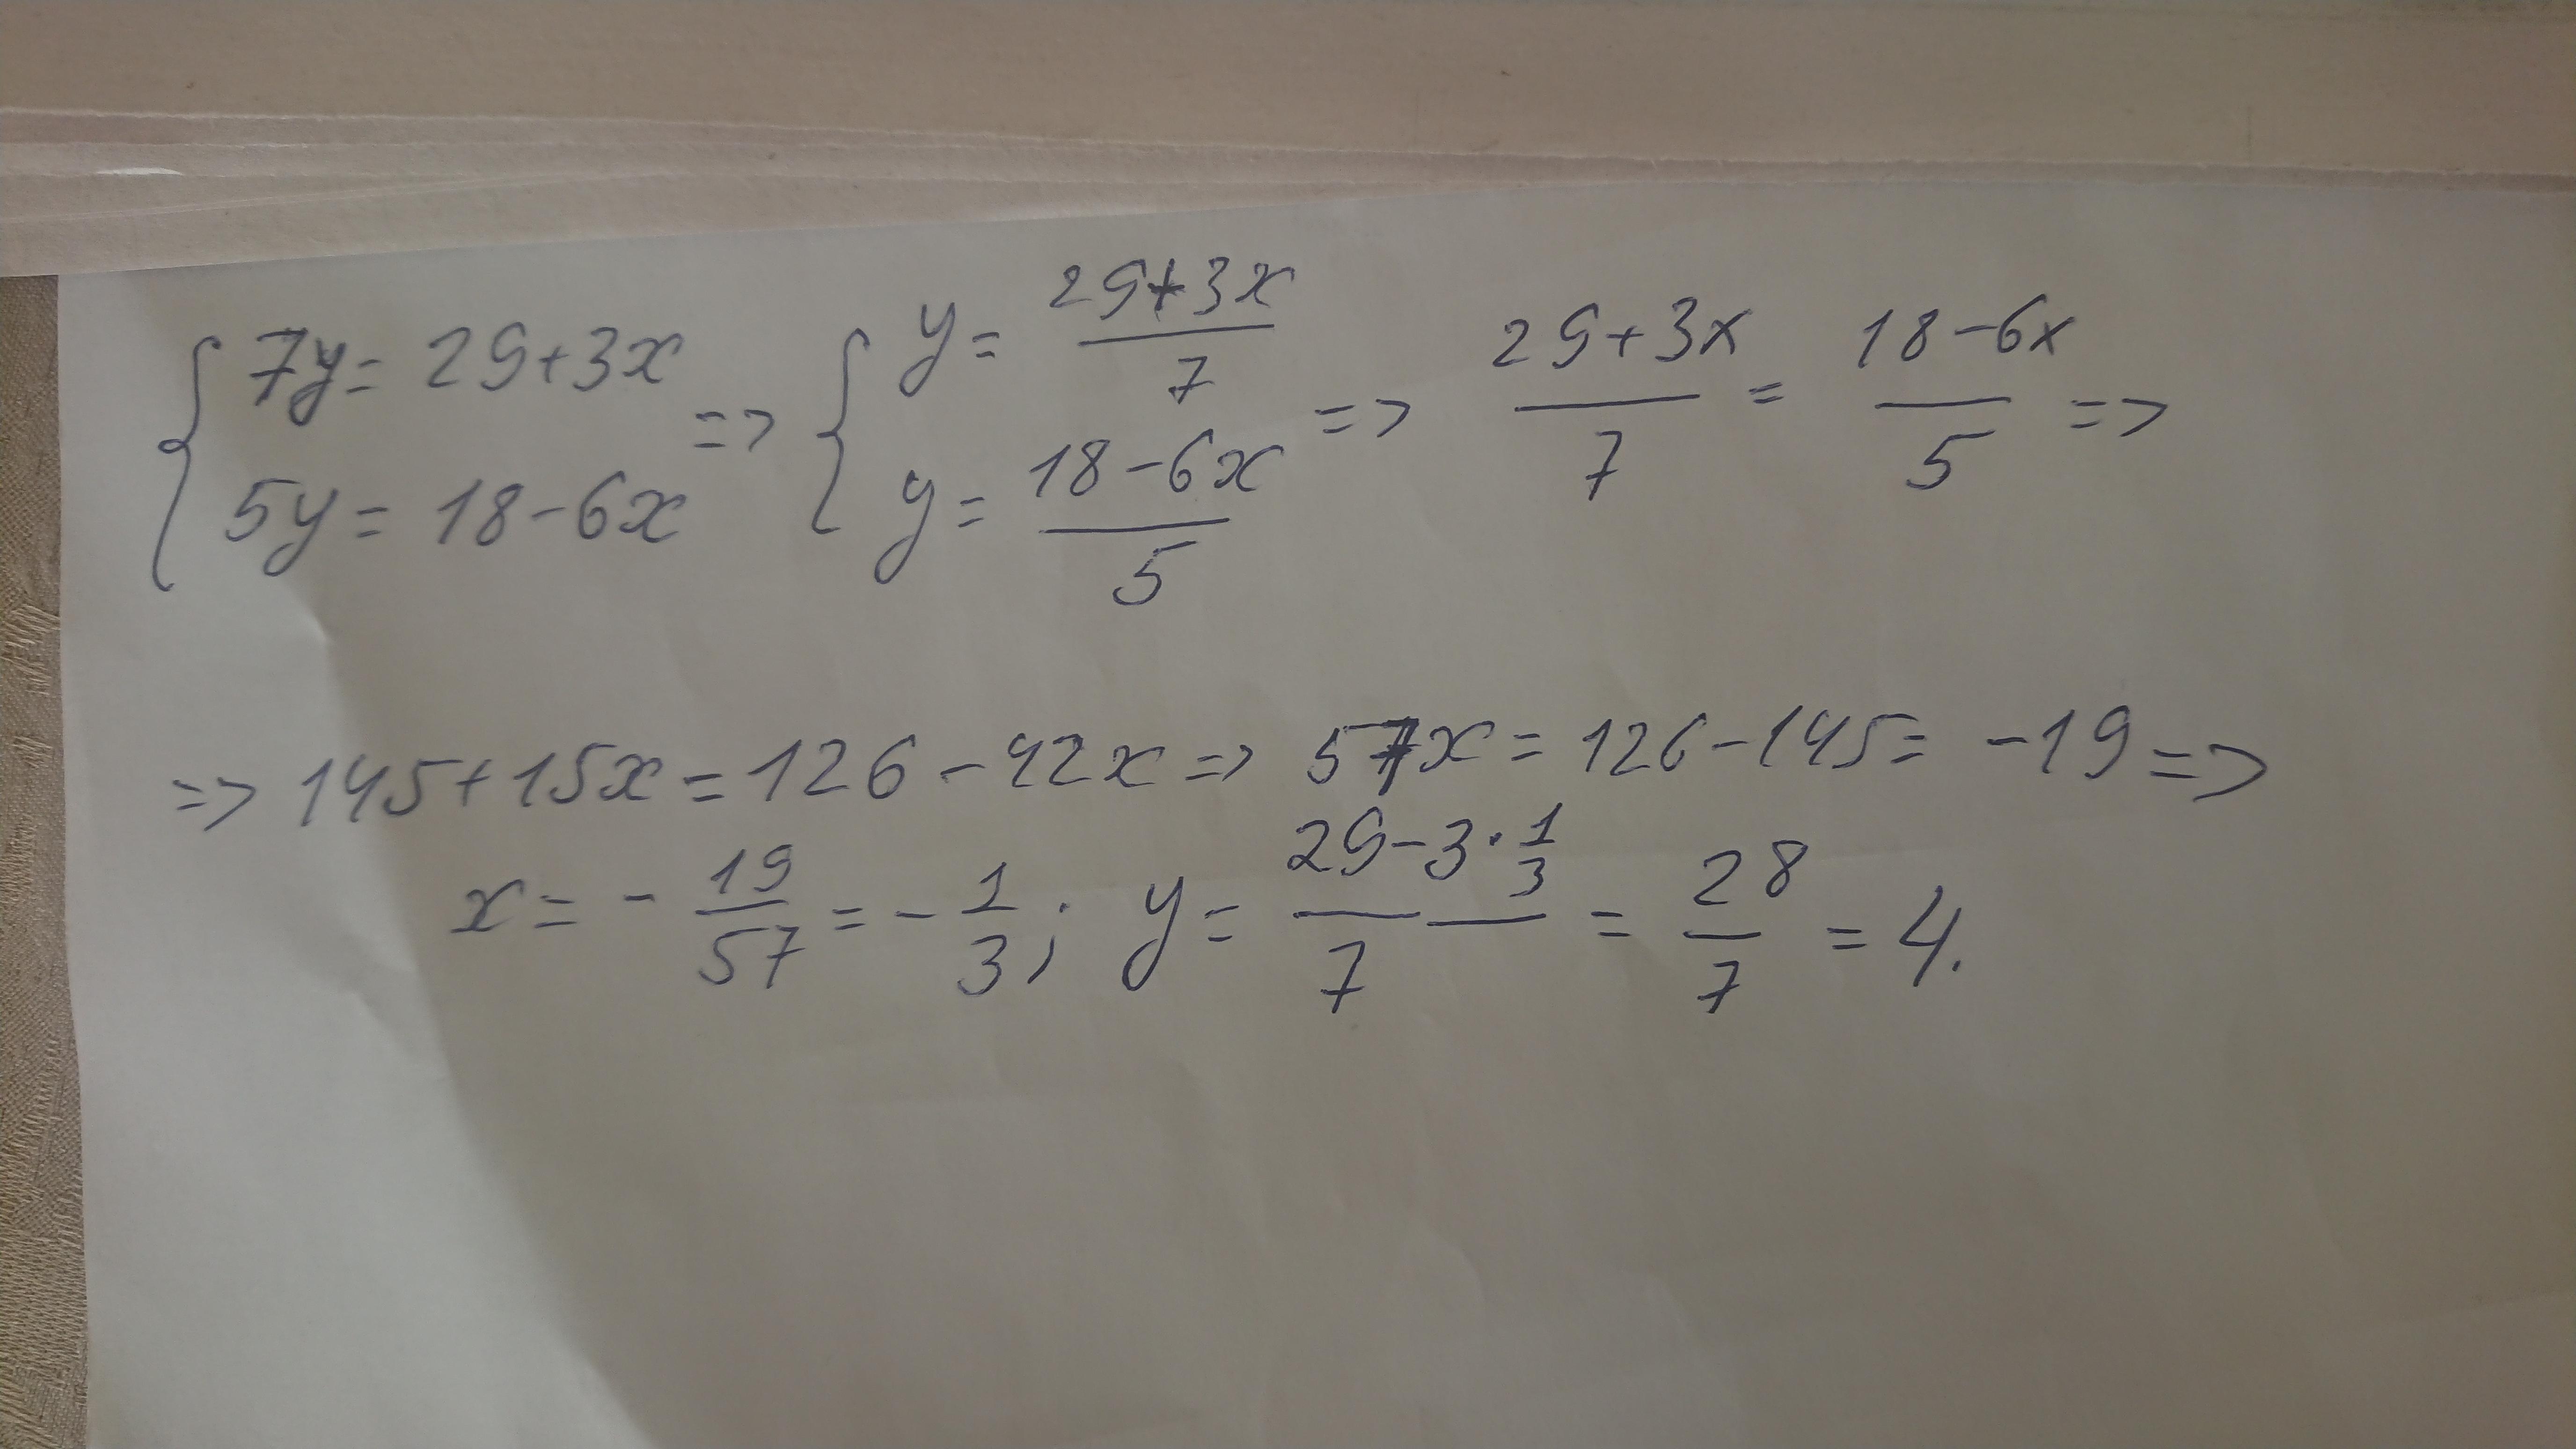 { 7y = 29+3x 5y = 18-6x => { y = (29+3x)/7 y = (18-6x)/5 => (29+3x)/7 = (18-6x)/5 =>
=> 145+15x = 126-42x => 57x = 126-145 = -19 =>
x = -19/57 = -1/3; y = (29-3·1/3)/7 = 28/7 = 4.